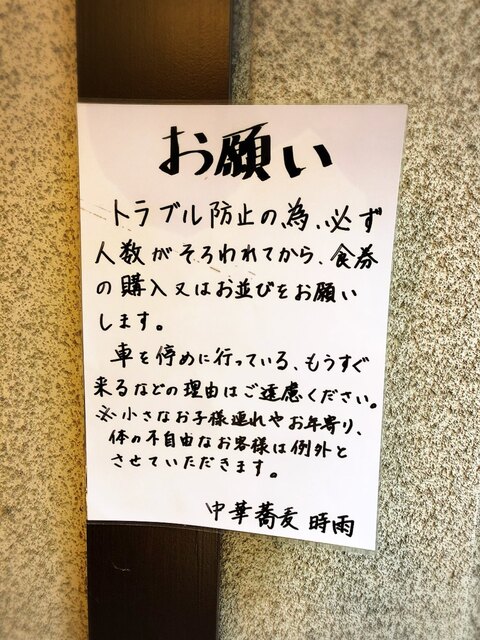 お願い
トラブル防止の為、必ず
人数がそろわれてから、食券
の購入又はお並びをお願い
します。
車を停めに行っている、もうすぐ
来るなどの理由はご遠慮ください。
※小さなお子様連れやお年寄り、
体の不自由なお客様は例外と
させていただきます。
中華蕎麦 時雨